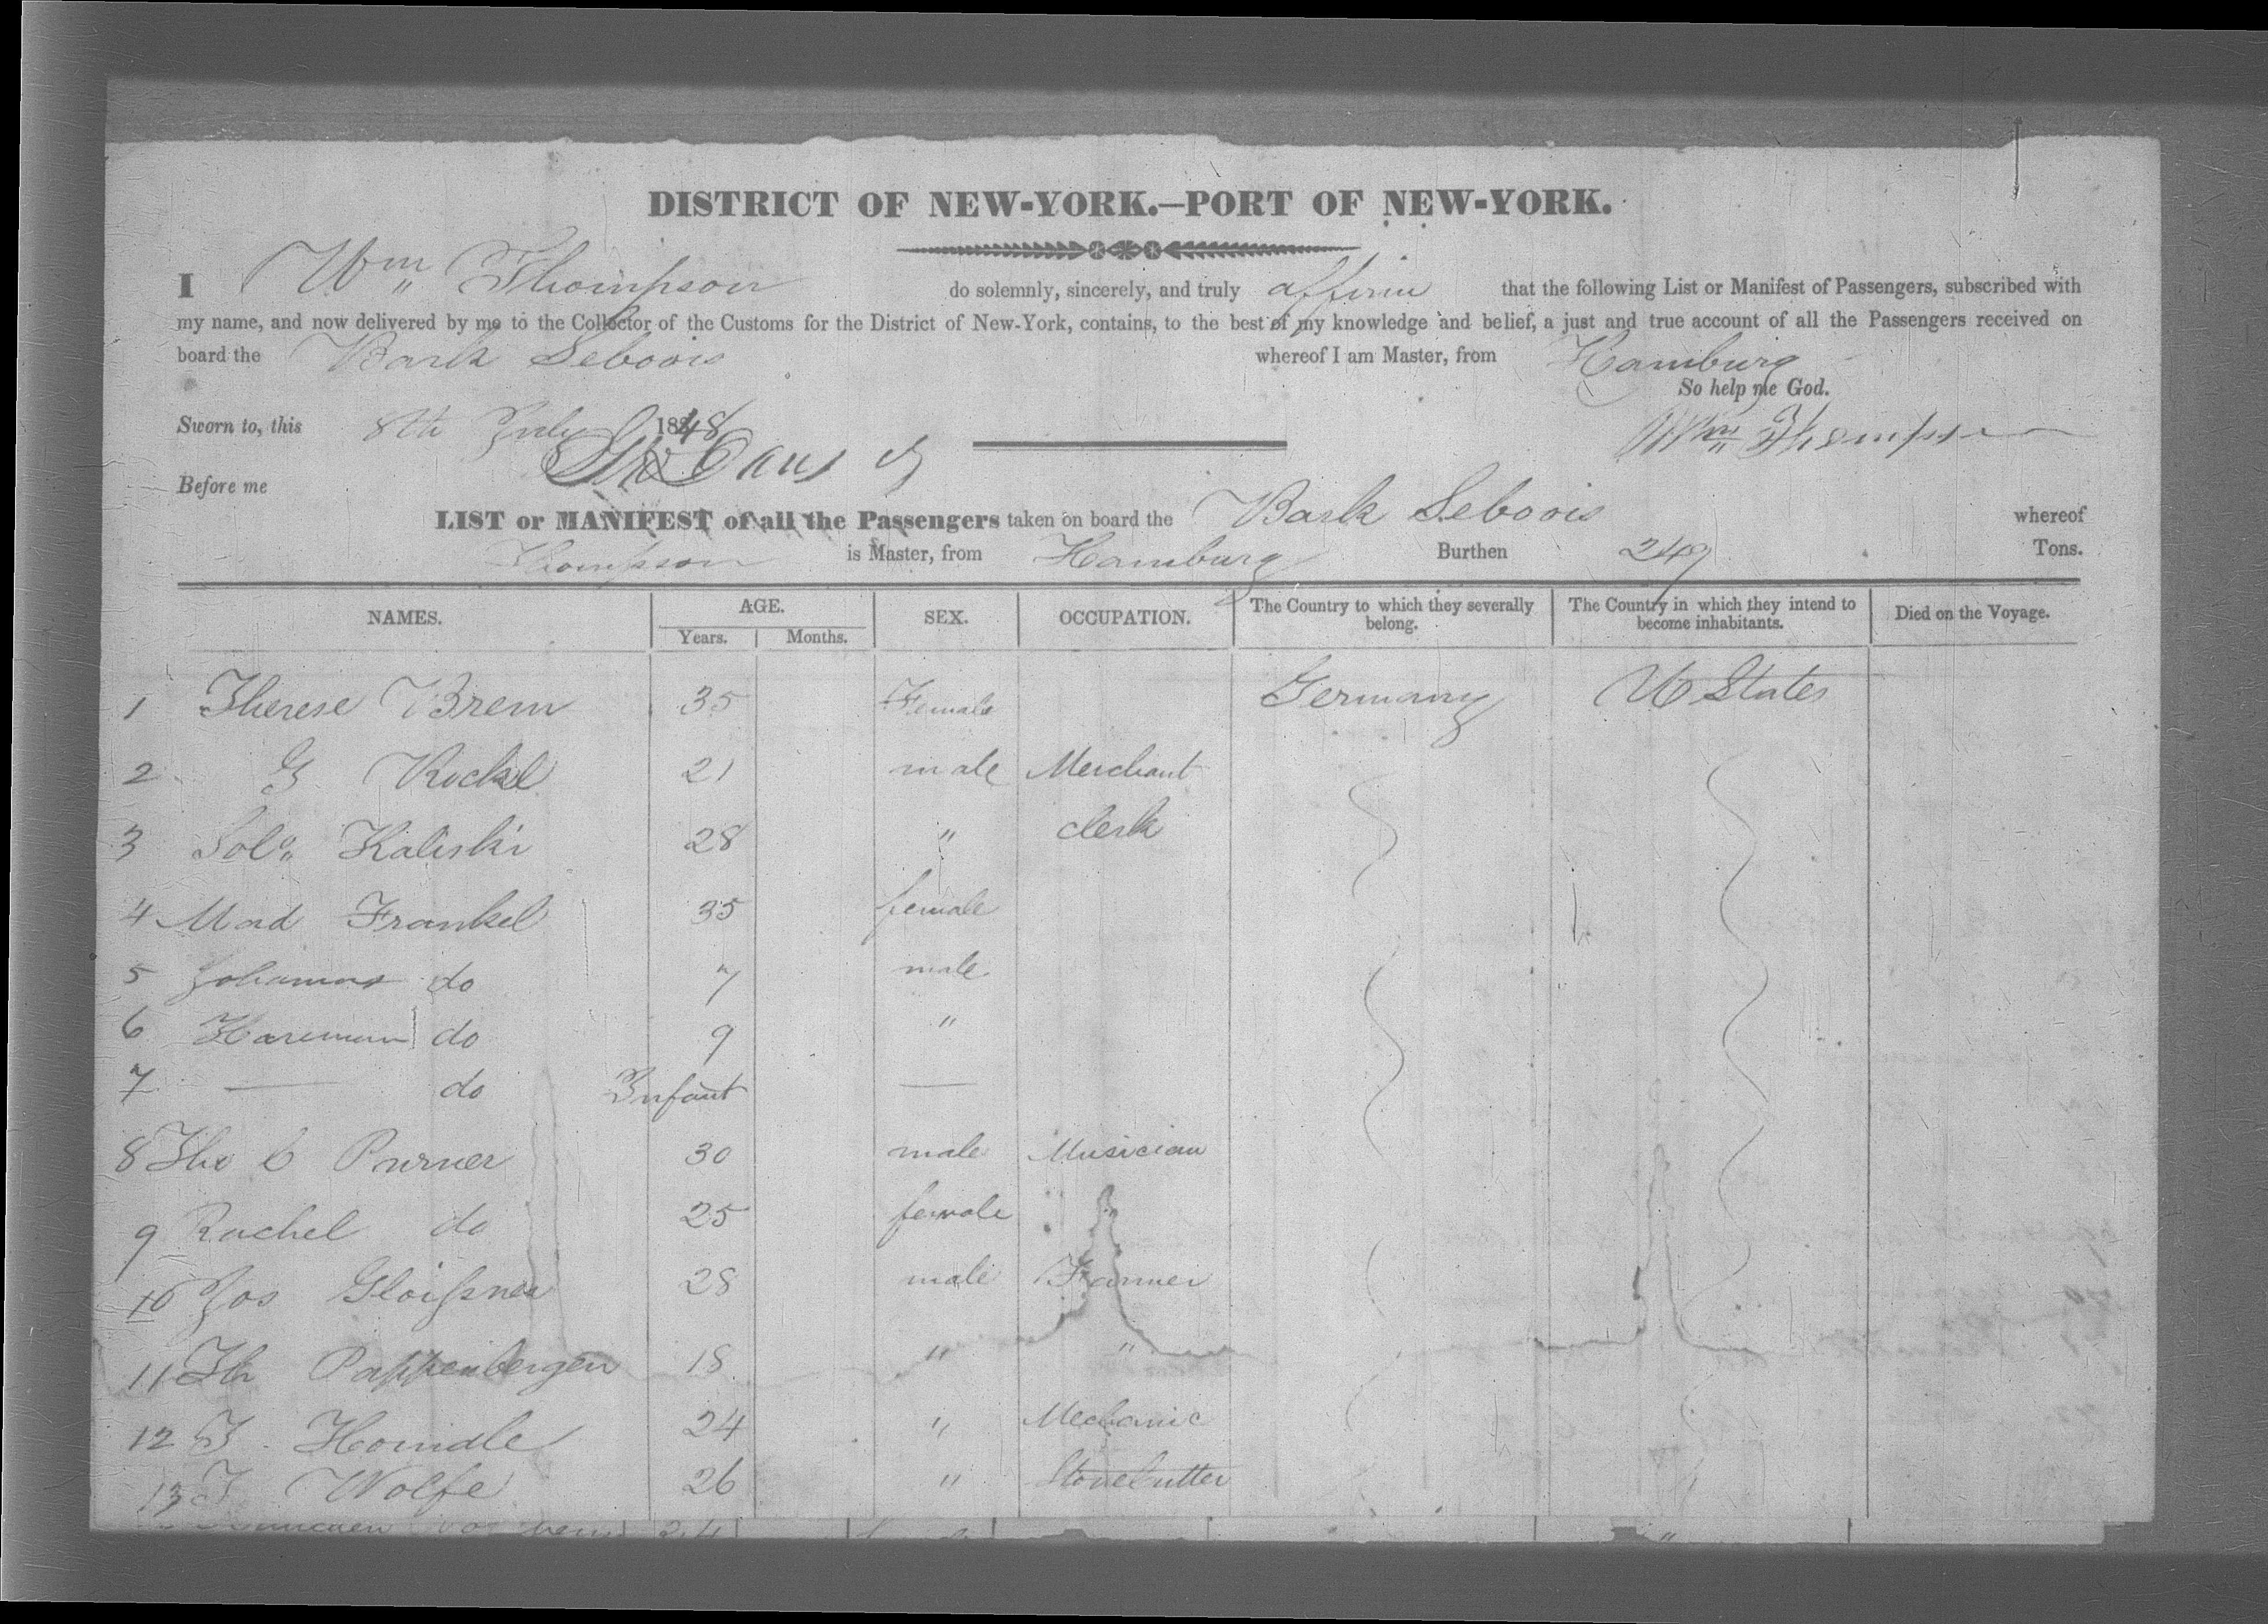 DISTRICT OF NEW-YORK.—PORT OF NEW-YORK.
I Wm Thompson do solemnly, sincerely, and truly affirm that the following List or Manifest of Passengers, subscribed with
my name, and now delivered by me to the Collector of the Customs for the District of New-York, contains, to the best of my knowledge and belief, a just and true account of all the Passengers received on
board the Bark Seboois whereof I am Master, from Hamburg
So help me God.
Sworn to, this 8th July 1848 Wm Thompson
Before me
LIST or MANIFEST of all the Passengers taken on board the Bark Seboois whereof
Thompson is Master, from Hamburg Burthen 249 Tons.
NAMES. AGE. SEX. OCCUPATION. The Country to which they severally belong. The Country in which they intend to become inhabitants. Died on the Voyage.
Years. Months.
1 Therese Brem 35 Female Germany U States
2 G 21 male Merchant
3 Solo Kaliski 28 " clerk
4 Mad Frankel 35 female
5 do 7 male
6 do 9 "
7 — do Infant —
8 Ths C Purner 30 male Musician
9 Rachel do 25 female
10 Jos 28 male Farmer
11 Th Pappenbergen 18 " "
12 J. Hoindle 24 " Mechanic
13 J Wolfe 26 " Stonecutter
24